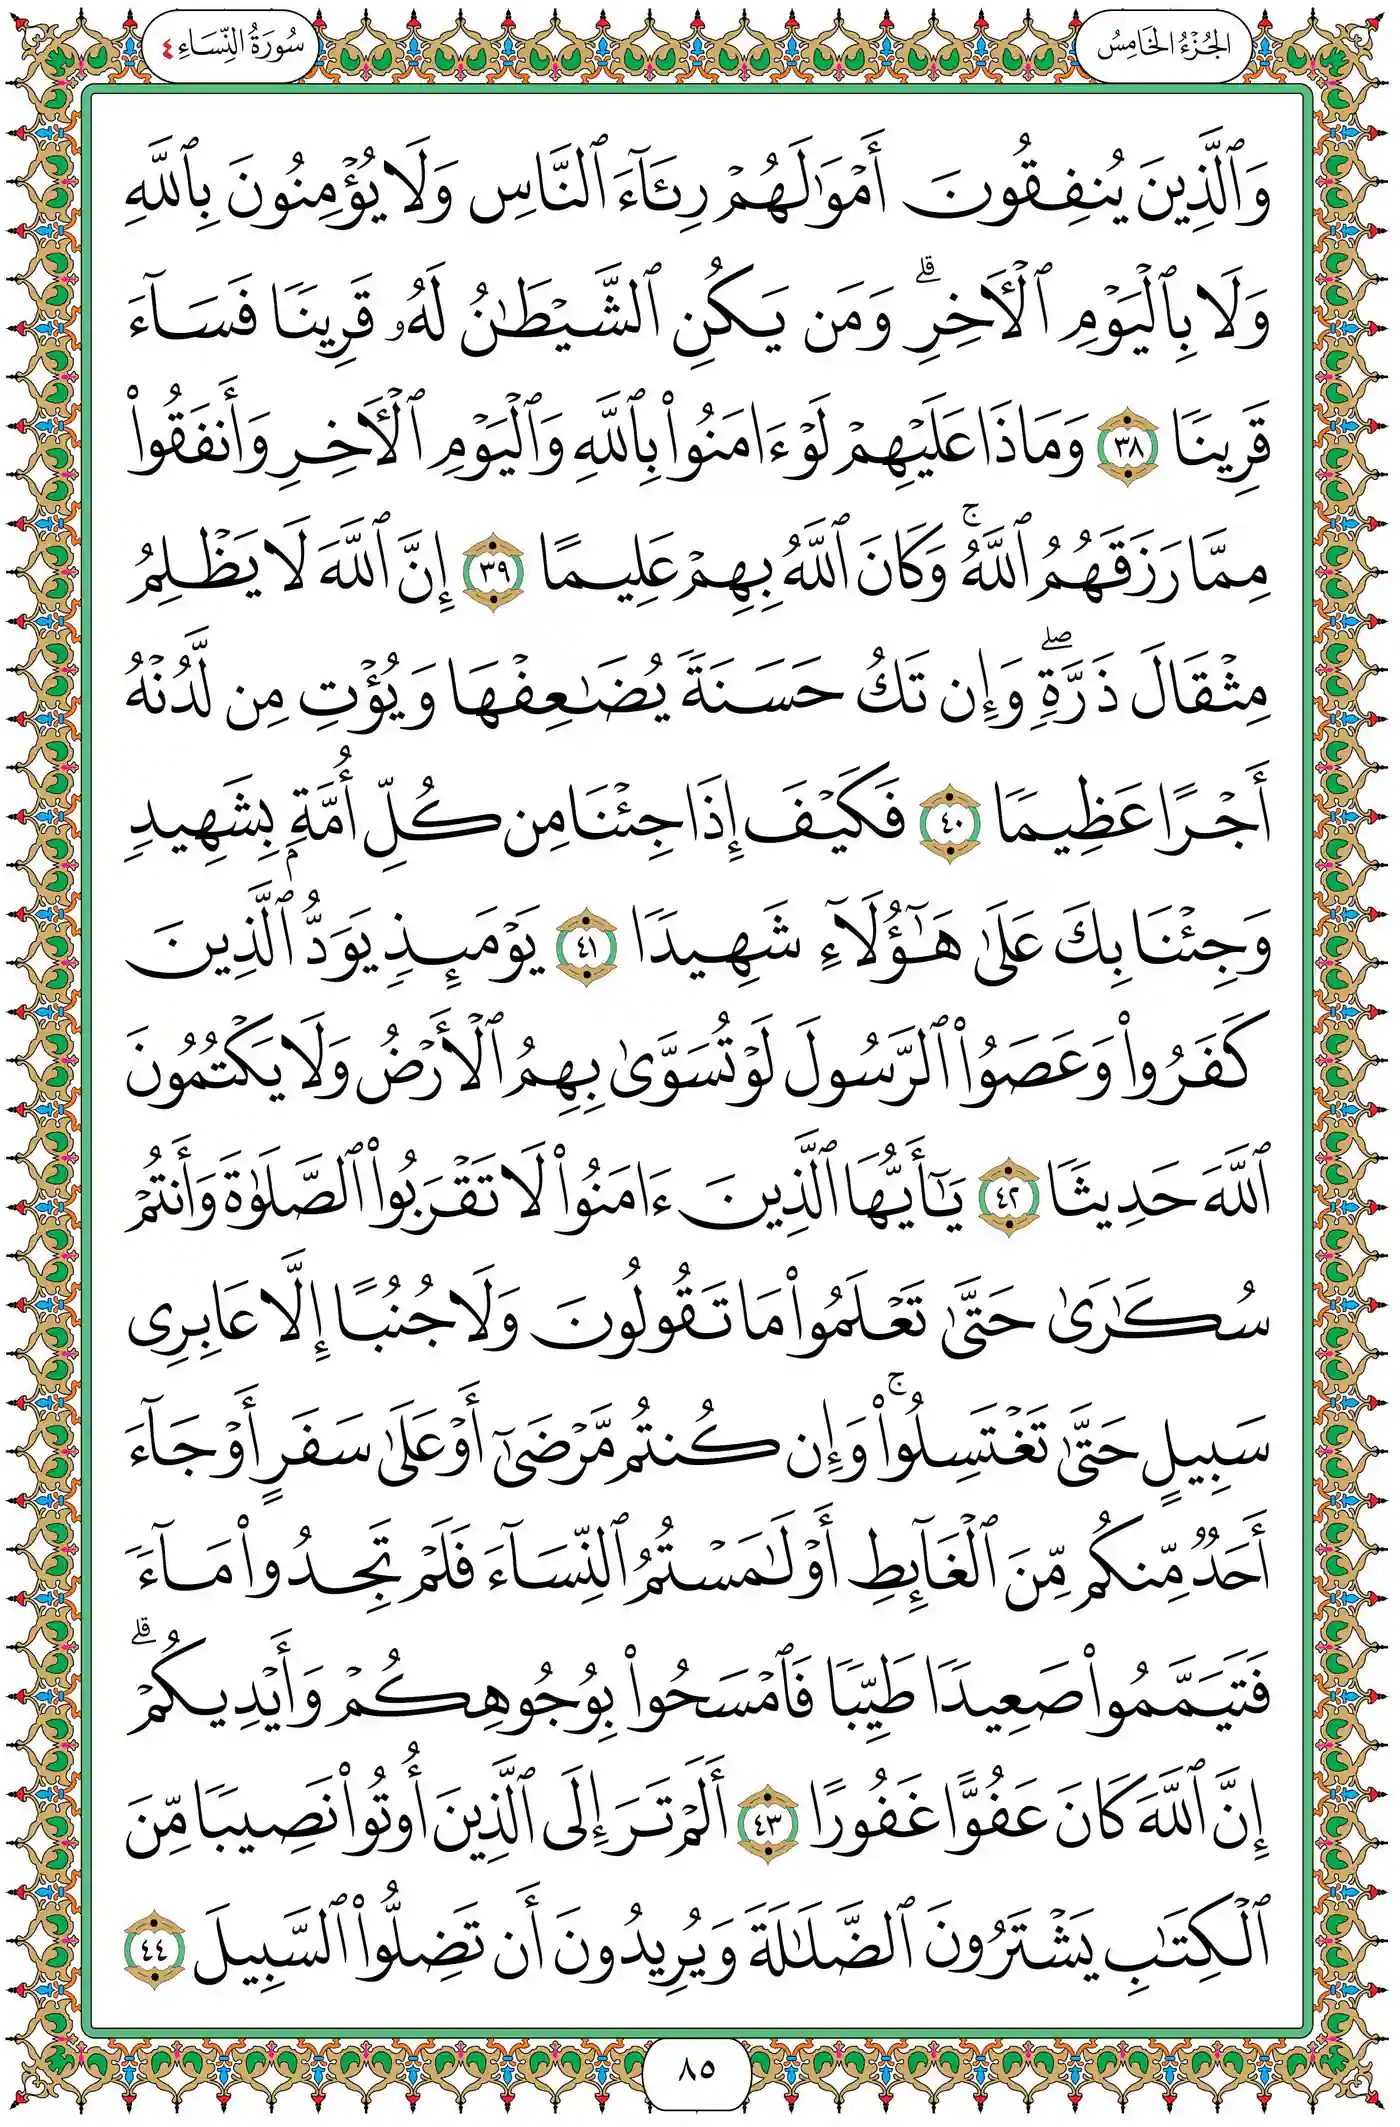 الجُزْءُ الخَامِسُ
سُورَةُ النِّسَاءِ ٤
وَٱلَّذِينَ يُنفِقُونَ أَمۡوَٰلَهُمۡ رِئَآءَ ٱلنَّاسِ وَلَا يُؤۡمِنُونَ بِٱللَّهِ
وَلَا بِٱلۡيَوۡمِ ٱلۡأٓخِرِۗ وَمَن يَكُنِ ٱلشَّيۡطَٰنُ لَهُۥ قَرِينٗا فَسَآءَ
قَرِينٗا ٣٨ وَمَاذَا عَلَيۡهِمۡ لَوۡ ءَامَنُواْ بِٱللَّهِ وَٱلۡيَوۡمِ ٱلۡأٓخِرِ وَأَنفَقُواْ
مِمَّا رَزَقَهُمُ ٱللَّهُۚ وَكَانَ ٱللَّهُ بِهِمۡ عَلِيمًا ٣٩ إِنَّ ٱللَّهَ لَا يَظۡلِمُ
مِثۡقَالَ ذَرَّةٖۖ وَإِن تَكُ حَسَنَةٗ يُضَٰعِفۡهَا وَيُؤۡتِ مِن لَّدُنۡهُ
أَجۡرًا عَظِيمٗا ٤٠ فَكَيۡفَ إِذَا جِئۡنَا مِن كُلِّ أُمَّةِۭ بِشَهِيدٖ
وَجِئۡنَا بِكَ عَلَىٰ هَٰٓؤُلَآءِ شَهِيدٗا ٤١ يَوۡمَئِذٖ يَوَدُّ ٱلَّذِينَ
كَفَرُواْ وَعَصَوُاْ ٱلرَّسُولَ لَوۡ تُسَوَّىٰ بِهِمُ ٱلۡأَرۡضُ وَلَا يَكۡتُمُونَ
ٱللَّهَ حَدِيثٗا ٤٢ يَٰٓأَيُّهَا ٱلَّذِينَ ءَامَنُواْ لَا تَقۡرَبُواْ ٱلصَّلَوٰةَ وَأَنتُمۡ
سُكَٰرَىٰ حَتَّىٰ تَعۡلَمُواْ مَا تَقُولُونَ وَلَا جُنُبًا إِلَّا عَابِرِي
سَبِيلٍ حَتَّىٰ تَغۡتَسِلُواْۚ وَإِن كُنتُم مَّرۡضَىٰٓ أَوۡ عَلَىٰ سَفَرٍ أَوۡ جَآءَ
أَحَدٞ مِّنكُم مِّنَ ٱلۡغَآئِطِ أَوۡ لَٰمَسۡتُمُ ٱلنِّسَآءَ فَلَمۡ تَجِدُواْ مَآءٗ
فَتَيَمَّمُواْ صَعِيدٗا طَيِّبٗا فَٱمۡسَحُواْ بِوُجُوهِكُمۡ وَأَيۡدِيكُمۡۗ
إِنَّ ٱللَّهَ كَانَ عَفُوًّا غَفُورًا ٤٣ أَلَمۡ تَرَ إِلَى ٱلَّذِينَ أُوتُواْ نَصِيبٗا مِّنَ
ٱلۡكِتَٰبِ يَشۡتَرُونَ ٱلضَّلَٰلَةَ وَيُرِيدُونَ أَن تَضِلُّواْ ٱلسَّبِيلَ ٤٤
٨٥